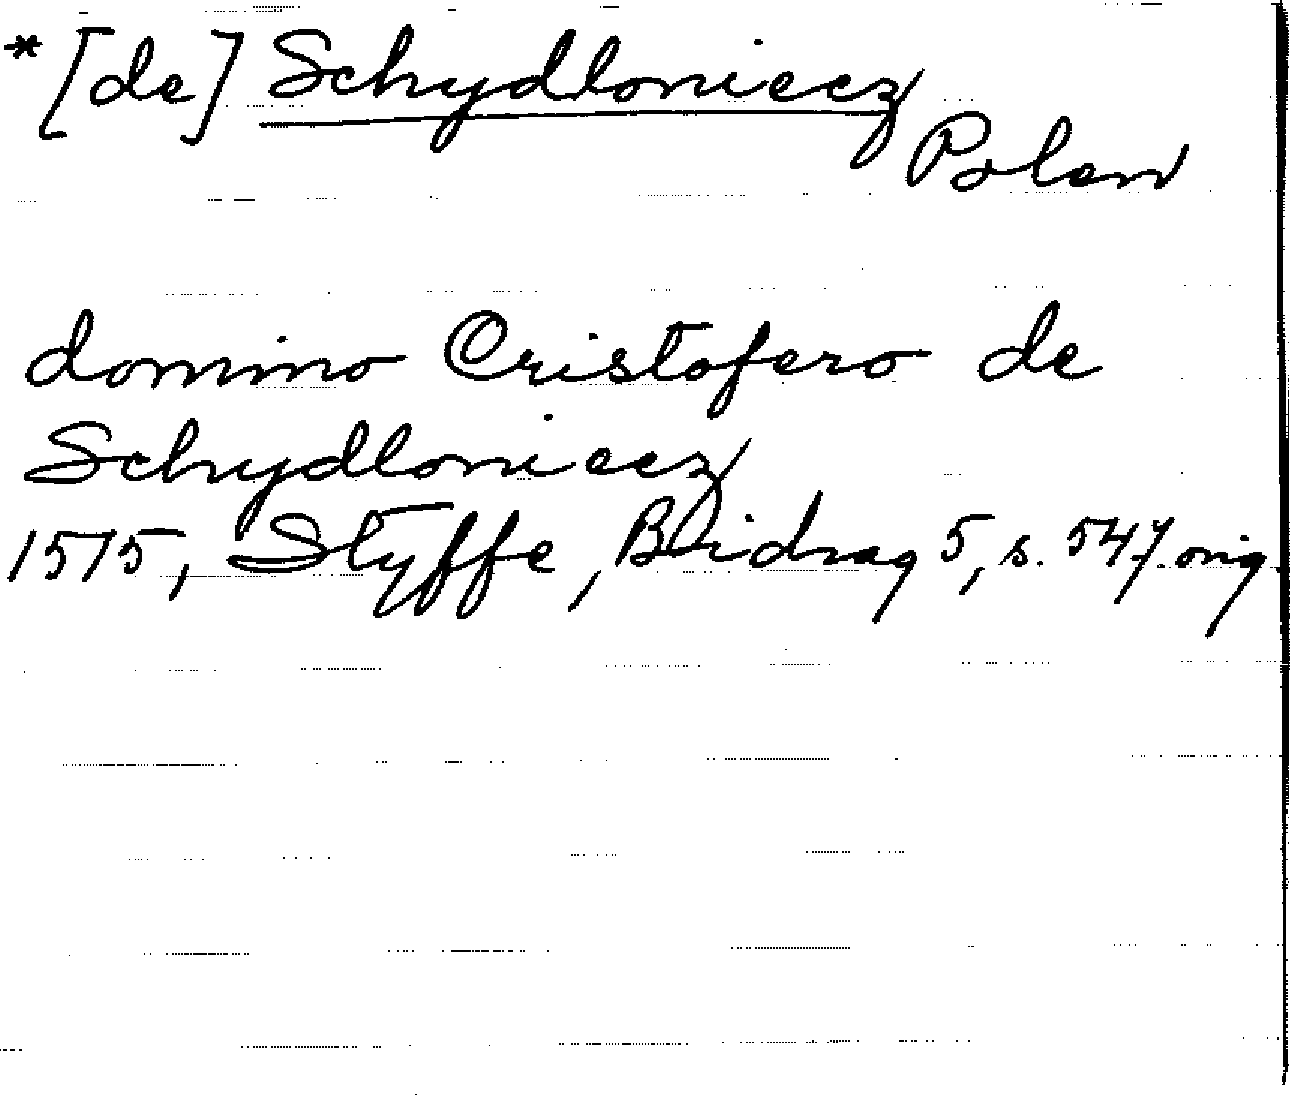 * [de] Schydloniecz
Polen
domino Cristofero de
Schydloniecz
1515, Styffe, Bidrag 5, s. 547 orig